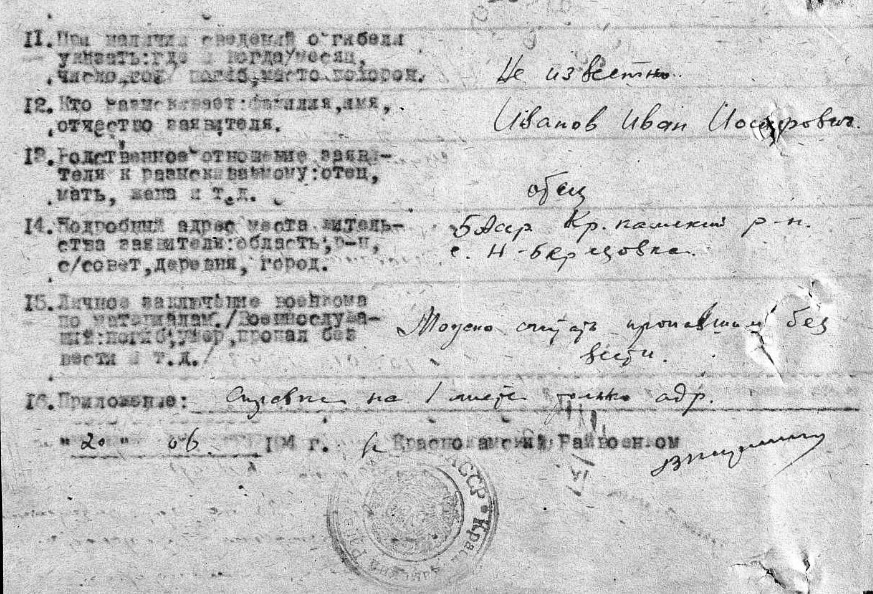 11. При наличии сведений о гибели
указать: где и когда/месяц,
число, год/ погиб, место похорон. Не известно.
12. Кто разыскивает: фамилия, имя,
отчество заявителя. Иванов Иван
13. Родственное отношение заяви-
теля к разыскиваемому: отец,
мать, жена и т.д. отец
14. Подробный адрес места житель-
ства заявителя: область, р-н,
с/совет, деревня, город. БАср Кр.камский р-н.
с. Н-Березовка.
15. Личное заключение военкома
по материалам. /Военнослужа-
щий: погиб, умер, пропал без
вести и т.д./ Можно считать пропавшим без
вести.
16. Приложение: Справка на 1 листе только адр.
"20" 06. 194 г. Краснокамский Райвоенком
АССР * Крас